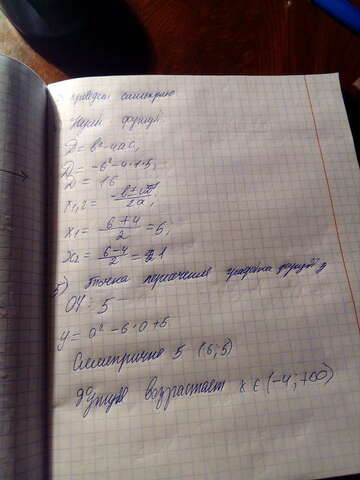 проведем симетрию
Нули функц.
D = b²-4ac,
D = -6²-4·1·5;
D = 16
x₁,₂ = -b±√D / 2a,
x₁ = 6+4 / 2 = 5;
x₂ = 6-4 / 2 = 1
5) точка пересечения графика функц
OY: 5
y = 0²-6·0+5
Симетрично 5 (6; 5)
функция возрастает x ∈ (-4; +∞)